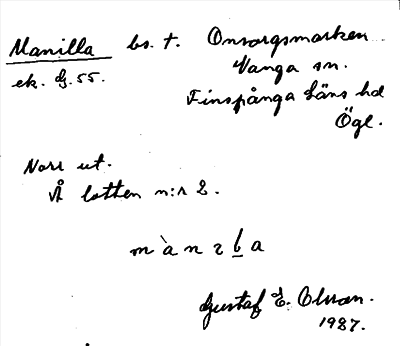 Manilla bs. t. Onsorgsmarken
ek. G. 55. Vånga sn.
Finspånga Läns hd
Ögl.
Norr ut.
Å lotten n:r 2.
m à n ɩ l a
Gustaf E. Olsson.
1987.